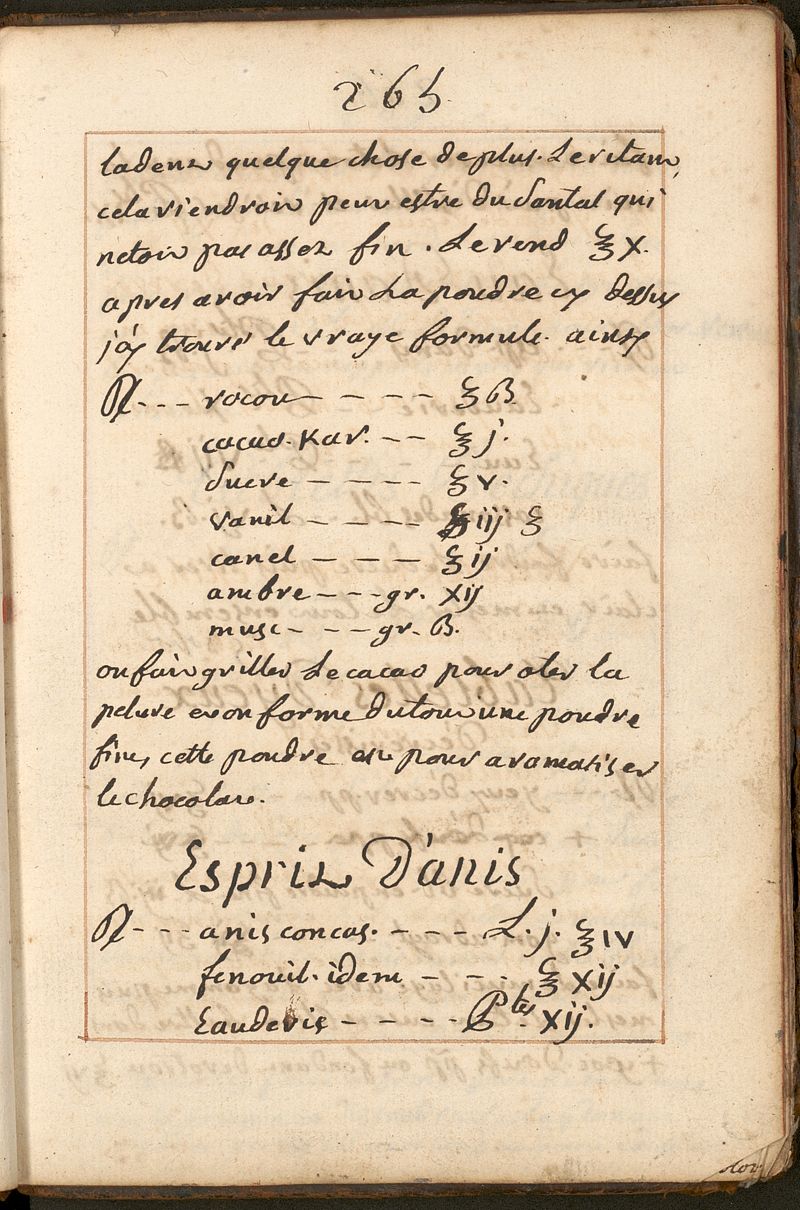 265
ladent quelque chose deplus. Le ritam,
celaviendroit peut estre du Santal qui
netoit pas assez fin. Le rend ℥ X.
apres avoir fait La poudre cy dessus
j'ay trouvé le vraye formule. ainsy
℞--- rocou ---- ℥ ß
cacao. Kar. -- ℥ j.
sucre ---- ℥ v.
vanil ---- ℥ iij ℥
canel --- ℥ ij
ambre --- gr. Xij
musc- --- gr. ß.
on fait griller Le cacao pour oter la
pelure et on forme du tout une poudre
fine, cette poudre est pour aromatiser
le chocolate.
Esprit D'anis
℞--- anis concas. --- L. j. ℥ IV
fenouil. idem --- ℥ Xij
Eaudevie ---- Ptes Xij.